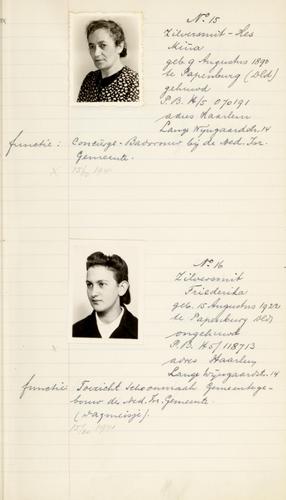 No 15
Zilversmit - Hes
Mina
geb. 9 Augustus 1890
te Papenburg (Dld)
gehuwd
P.B. H/5 070191
adres Haarlem
Lange Wijngaardstr. 14
functie: Conciërge - Badvrouw bij de Ned. Isr.
Gemeente.
No 16
Zilversmit
Friederika
geb. 15 Augustus 1922
te Papenburg Dld)
ongehuwd
P.B. H5/118713
adres Haarlem
Lange Wijngaardstr. 14
functie: Toezicht Schoonmaak Gemeentege-
bouw der Ned. Isr. Gemeente
(dagmeisje).